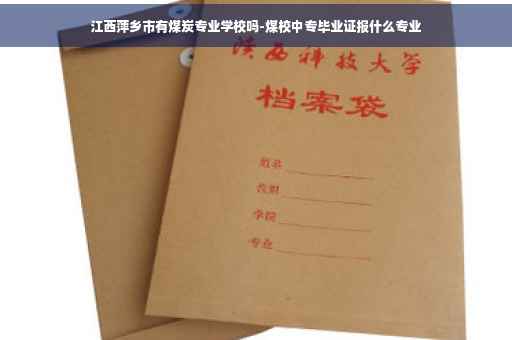 江西萍乡市有煤炭专业学校吗-煤校中专毕业证报什么专业
陕西科技大学
档案袋
姓名
学院
专业